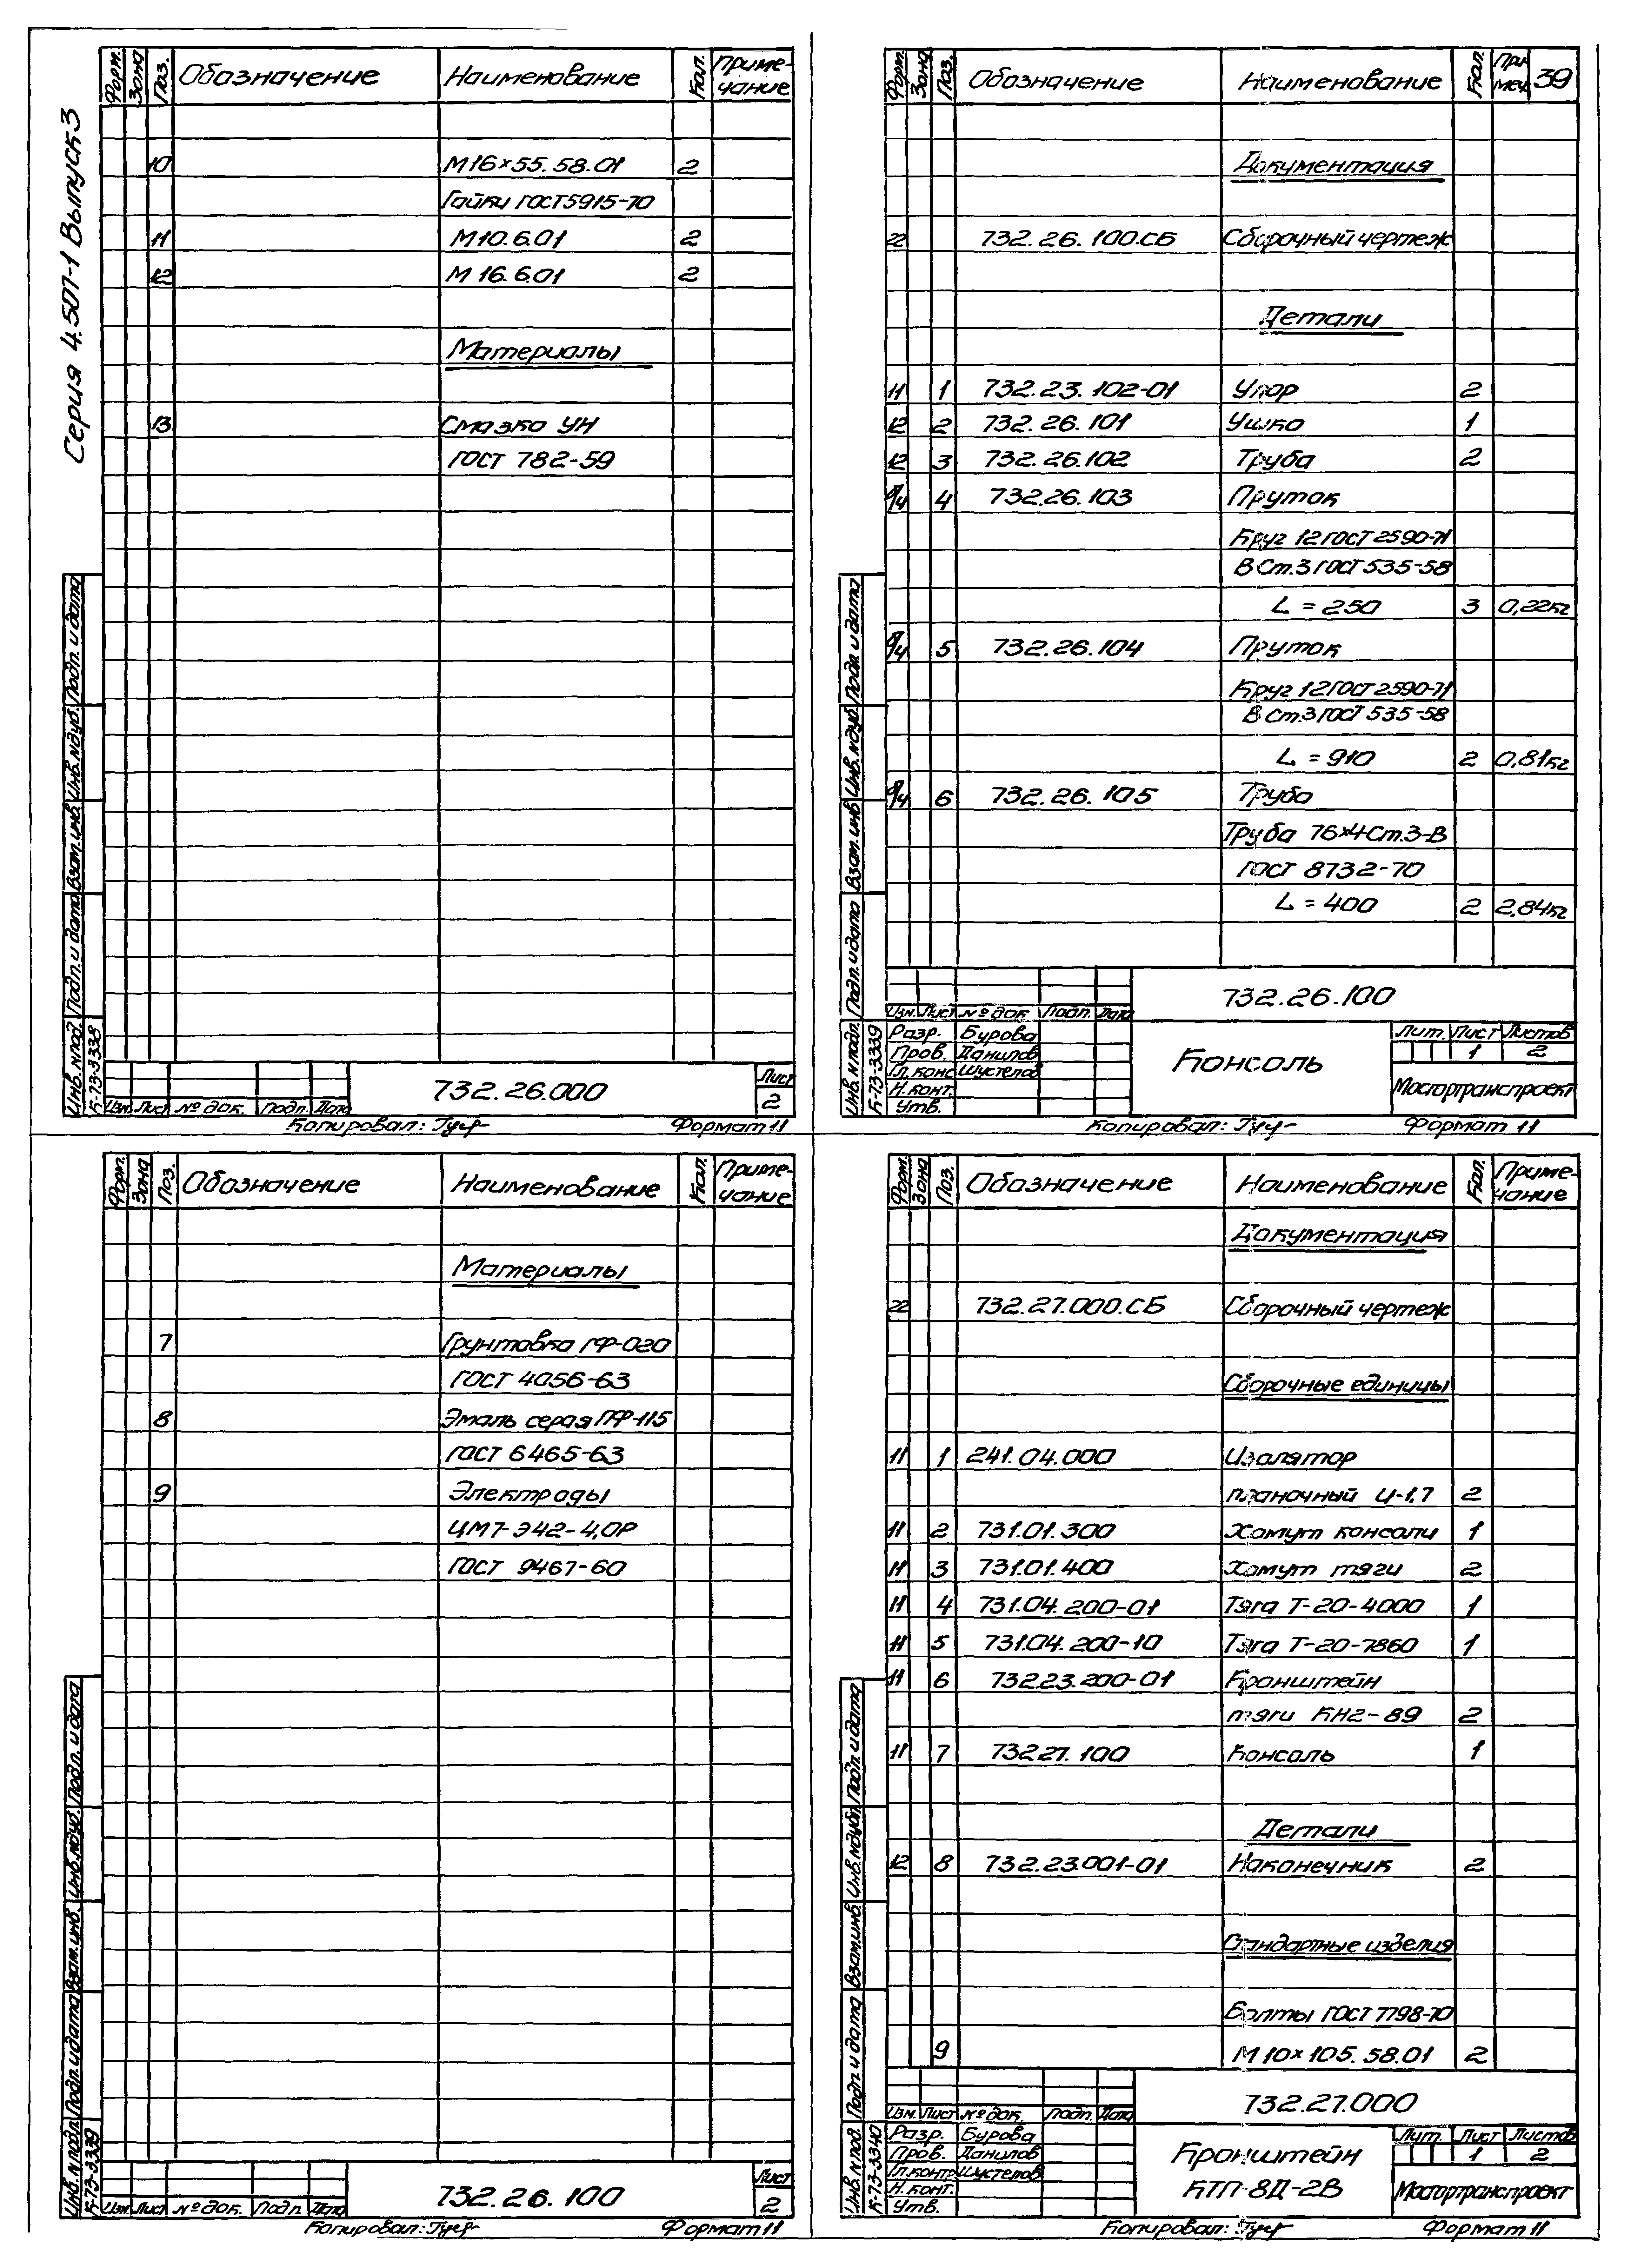 Серия 4.507-1 Выпуск 3
Форм. Зона Поз. Обозначение Наименование Кол. Приме-
чание
10 М16×55.58.01 2
Гайки ГОСТ 5915-70
11 М10.6.01 2
12 М16.6.01 2
Материалы
13 Смазка УН
ГОСТ 782-59
Инв. № подл. Подп. и дата Взам. инв. Инв. № дуб. Подп. и дата
К-73-3338
Изм. Лист № док. Подп. Дата
732.26.000
Лист
2
Копировал: Формат 11
Форм. Зона Поз. Обозначение Наименование Кол. При
меч. 39
Документация
22 732.26.100.СБ Сборочный чертеж
Детали
11 1 732.23.102-01 Упор 2
12 2 732.26.101 Ушко 1
12 3 732.26.102 Труба 2
б/ч 4 732.26.103 Пруток
Круг 12 ГОСТ 2590-71
В Ст.3 ГОСТ 535-58
L = 250 3 0,22кг
б/ч 5 732.26.104 Пруток
Круг 12 ГОСТ 2590-71
В Ст.3 ГОСТ 535-58
L = 910 2 0,81кг
б/ч 6 732.26.105 Труба
Труба 76×4 Ст.3-В
ГОСТ 8732-70
L = 400 2 2,84кг
Инв. № подл. Подп. и дата Взам. инв. Инв. № дуб. Подп. и дата
К-73-3339
732.26.100
Изм. Лист № док. Подп. Дата
Разр. Бурова
Пров. Данилов
Гл. конс Шустелов
Н. конт.
Утв.
Консоль
Лит. Лист Листов
1 2
Мосгортранспроект
Копировал: Формат 11
Форм. Зона Поз. Обозначение Наименование Кол. Приме-
чание
Материалы
7 Грунтовка ГФ-020
ГОСТ 4056-63
8 Эмаль серая ПФ-115
ГОСТ 6465-63
9 Электроды
ЦМ7-Э42-4,0Р
ГОСТ 9467-60
Инв. № подл. Подп. и дата Взам. инв. Инв. № дуб. Подп. и дата
К-73-3339
Изм. Лист № док. Подп. Дата
732.26.100
Лист
2
Копировал: Формат 11
Форм. Зона Поз. Обозначение Наименование Кол. Приме-
чание
Документация
22 732.27.000.СБ Сборочный чертеж
Сборочные единицы
11 1 241.04.000 Изолятор
планочный И-1,7 2
11 2 731.01.300 Хомут консоли 1
11 3 731.01.400 Хомут тяги 2
11 4 731.04.200-01 Тяга Т-20-4000 1
11 5 731.04.200-10 Тяга Т-20-7860 1
11 6 732.23.200-01 Кронштейн
тяги КН2-89 2
11 7 732.27.100 Консоль 1
Детали
12 8 732.23.001-01 Наконечник 2
Стандартные изделия
Болты ГОСТ 7798-70
9 М10×105.58.01 2
Инв. № под. Подп. и дата Взам. инв. Инв. № дубл. Подп. и дата
К-73-3340
732.27.000
Изм. Лист № док. Подп. Дата
Разр. Бурова
Пров. Данилов
Гл. контр Шустелов
Н. конт.
Утв.
Кронштейн
КТП-8Д-2В
Лит. Лист Листов
1 2
Мосгортранспроект
Копировал: Формат 11